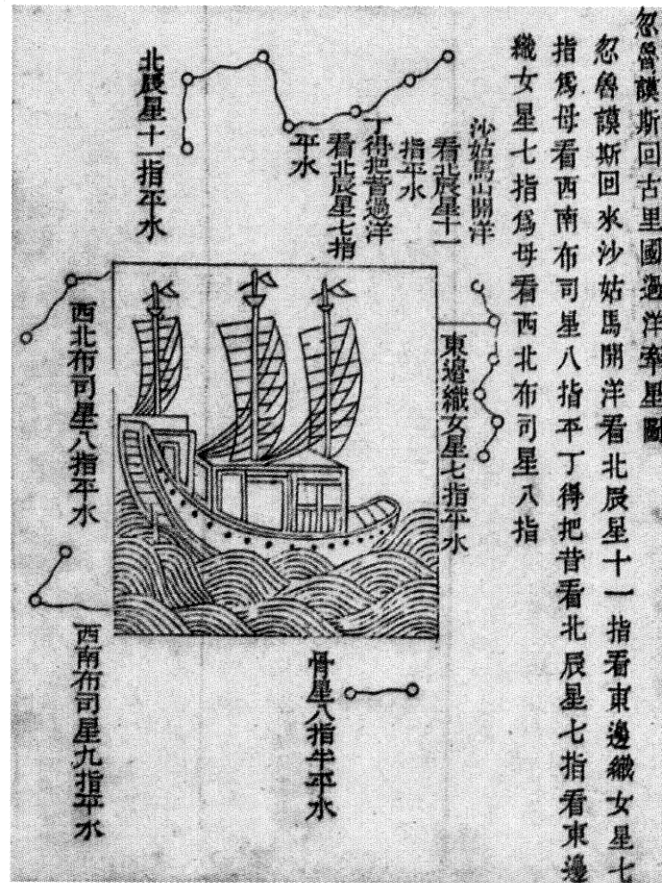 忽魯謨斯回古里國過洋牽星圖
忽魯謨斯回來沙姑馬開洋看北辰星十一指看東邊織女星七
指為母看西南布司星八指平丁得把昔看北辰星七指看東邊
織女星七指為母看西北布司星八指
沙姑馬山開洋
看北辰星十一
指平水
丁得把昔過洋
看北辰星七指
平水
北辰星十一指平水
東邊織女星七指平水
西北布司星八指平水
西南布司星九指平水
骨星八指半平水